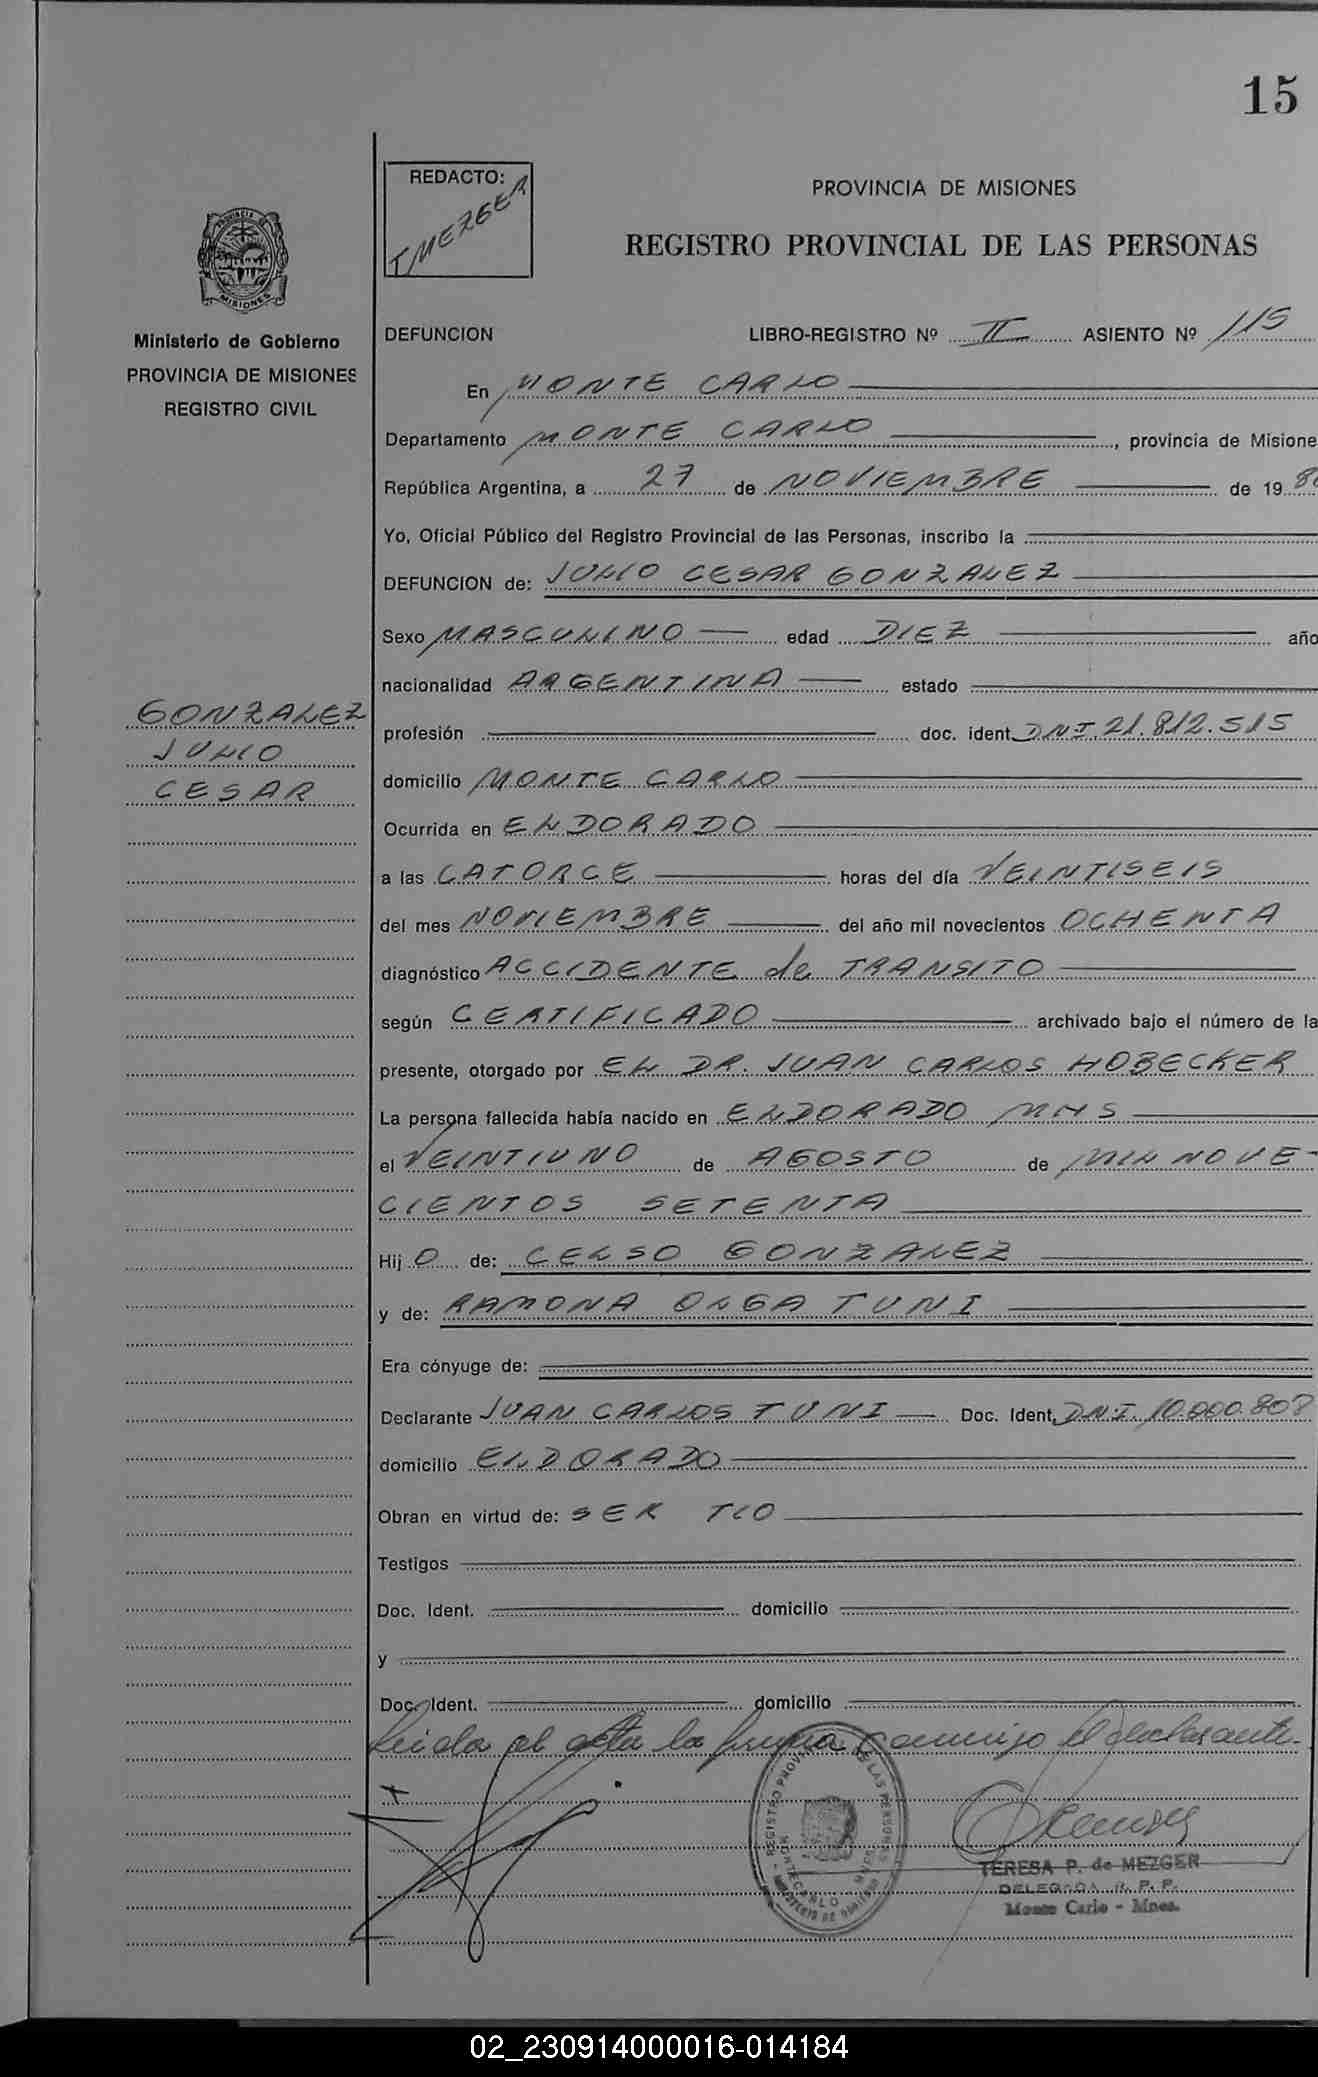 15
REDACTO:
T MEZGER
PROVINCIA DE MISIONES
REGISTRO PROVINCIAL DE LAS PERSONAS
PROVINCIA DE
MISIONES
Ministerio de Gobierno
PROVINCIA DE MISIONES
REGISTRO CIVIL
DEFUNCION LIBRO-REGISTRO Nº II ASIENTO Nº 115
En MONTE CARLO
Departamento MONTE CARLO, provincia de Misione
República Argentina, a 27 de NOVIEMBRE de 19 80
Yo, Oficial Público del Registro Provincial de las Personas, inscribo la
DEFUNCION de: JULIO CESAR GONZALEZ
Sexo MASCULINO edad DIEZ año
nacionalidad ARGENTINA estado
GONZALEZ
JULIO
CESAR
profesión doc. ident. DNI. 21.812.515
domicilio MONTE CARLO
Ocurrida en ELDORADO
a las CATORCE horas del día VEINTISEIS
del mes NOVIEMBRE del año mil novecientos OCHENTA
diagnóstico ACCIDENTE de TRANSITO
según CERTIFICADO archivado bajo el número de la
presente, otorgado por EL DR. JUAN CARLOS HOBECKER
La persona fallecida había nacido en ELDORADO MNS
el VEINTIUNO de AGOSTO de MIL NOVE-
CIENTOS SETENTA
Hij O de: CELSO GONZALEZ
y de: RAMONA OLGA TUNI
Era cónyuge de:
Declarante JUAN CARLOS TUNI Doc. Ident. DNI. 10.000.807
domicilio ELDORADO
Obran en virtud de: SER TIO
Testigos
Doc. Ident. domicilio
y
Doc. Ident. domicilio
Leida el acta la firma conmigo el declarante.
REGISTRO PROVINCIAL DE LAS PERSONAS
MONTECARLO - MNES.
MINISTERIO DE GOBIERNO
TERESA P. de MEZGER
DELEGADA R. P. P.
Monte Carlo - Mnes.
02_230914000016-014184